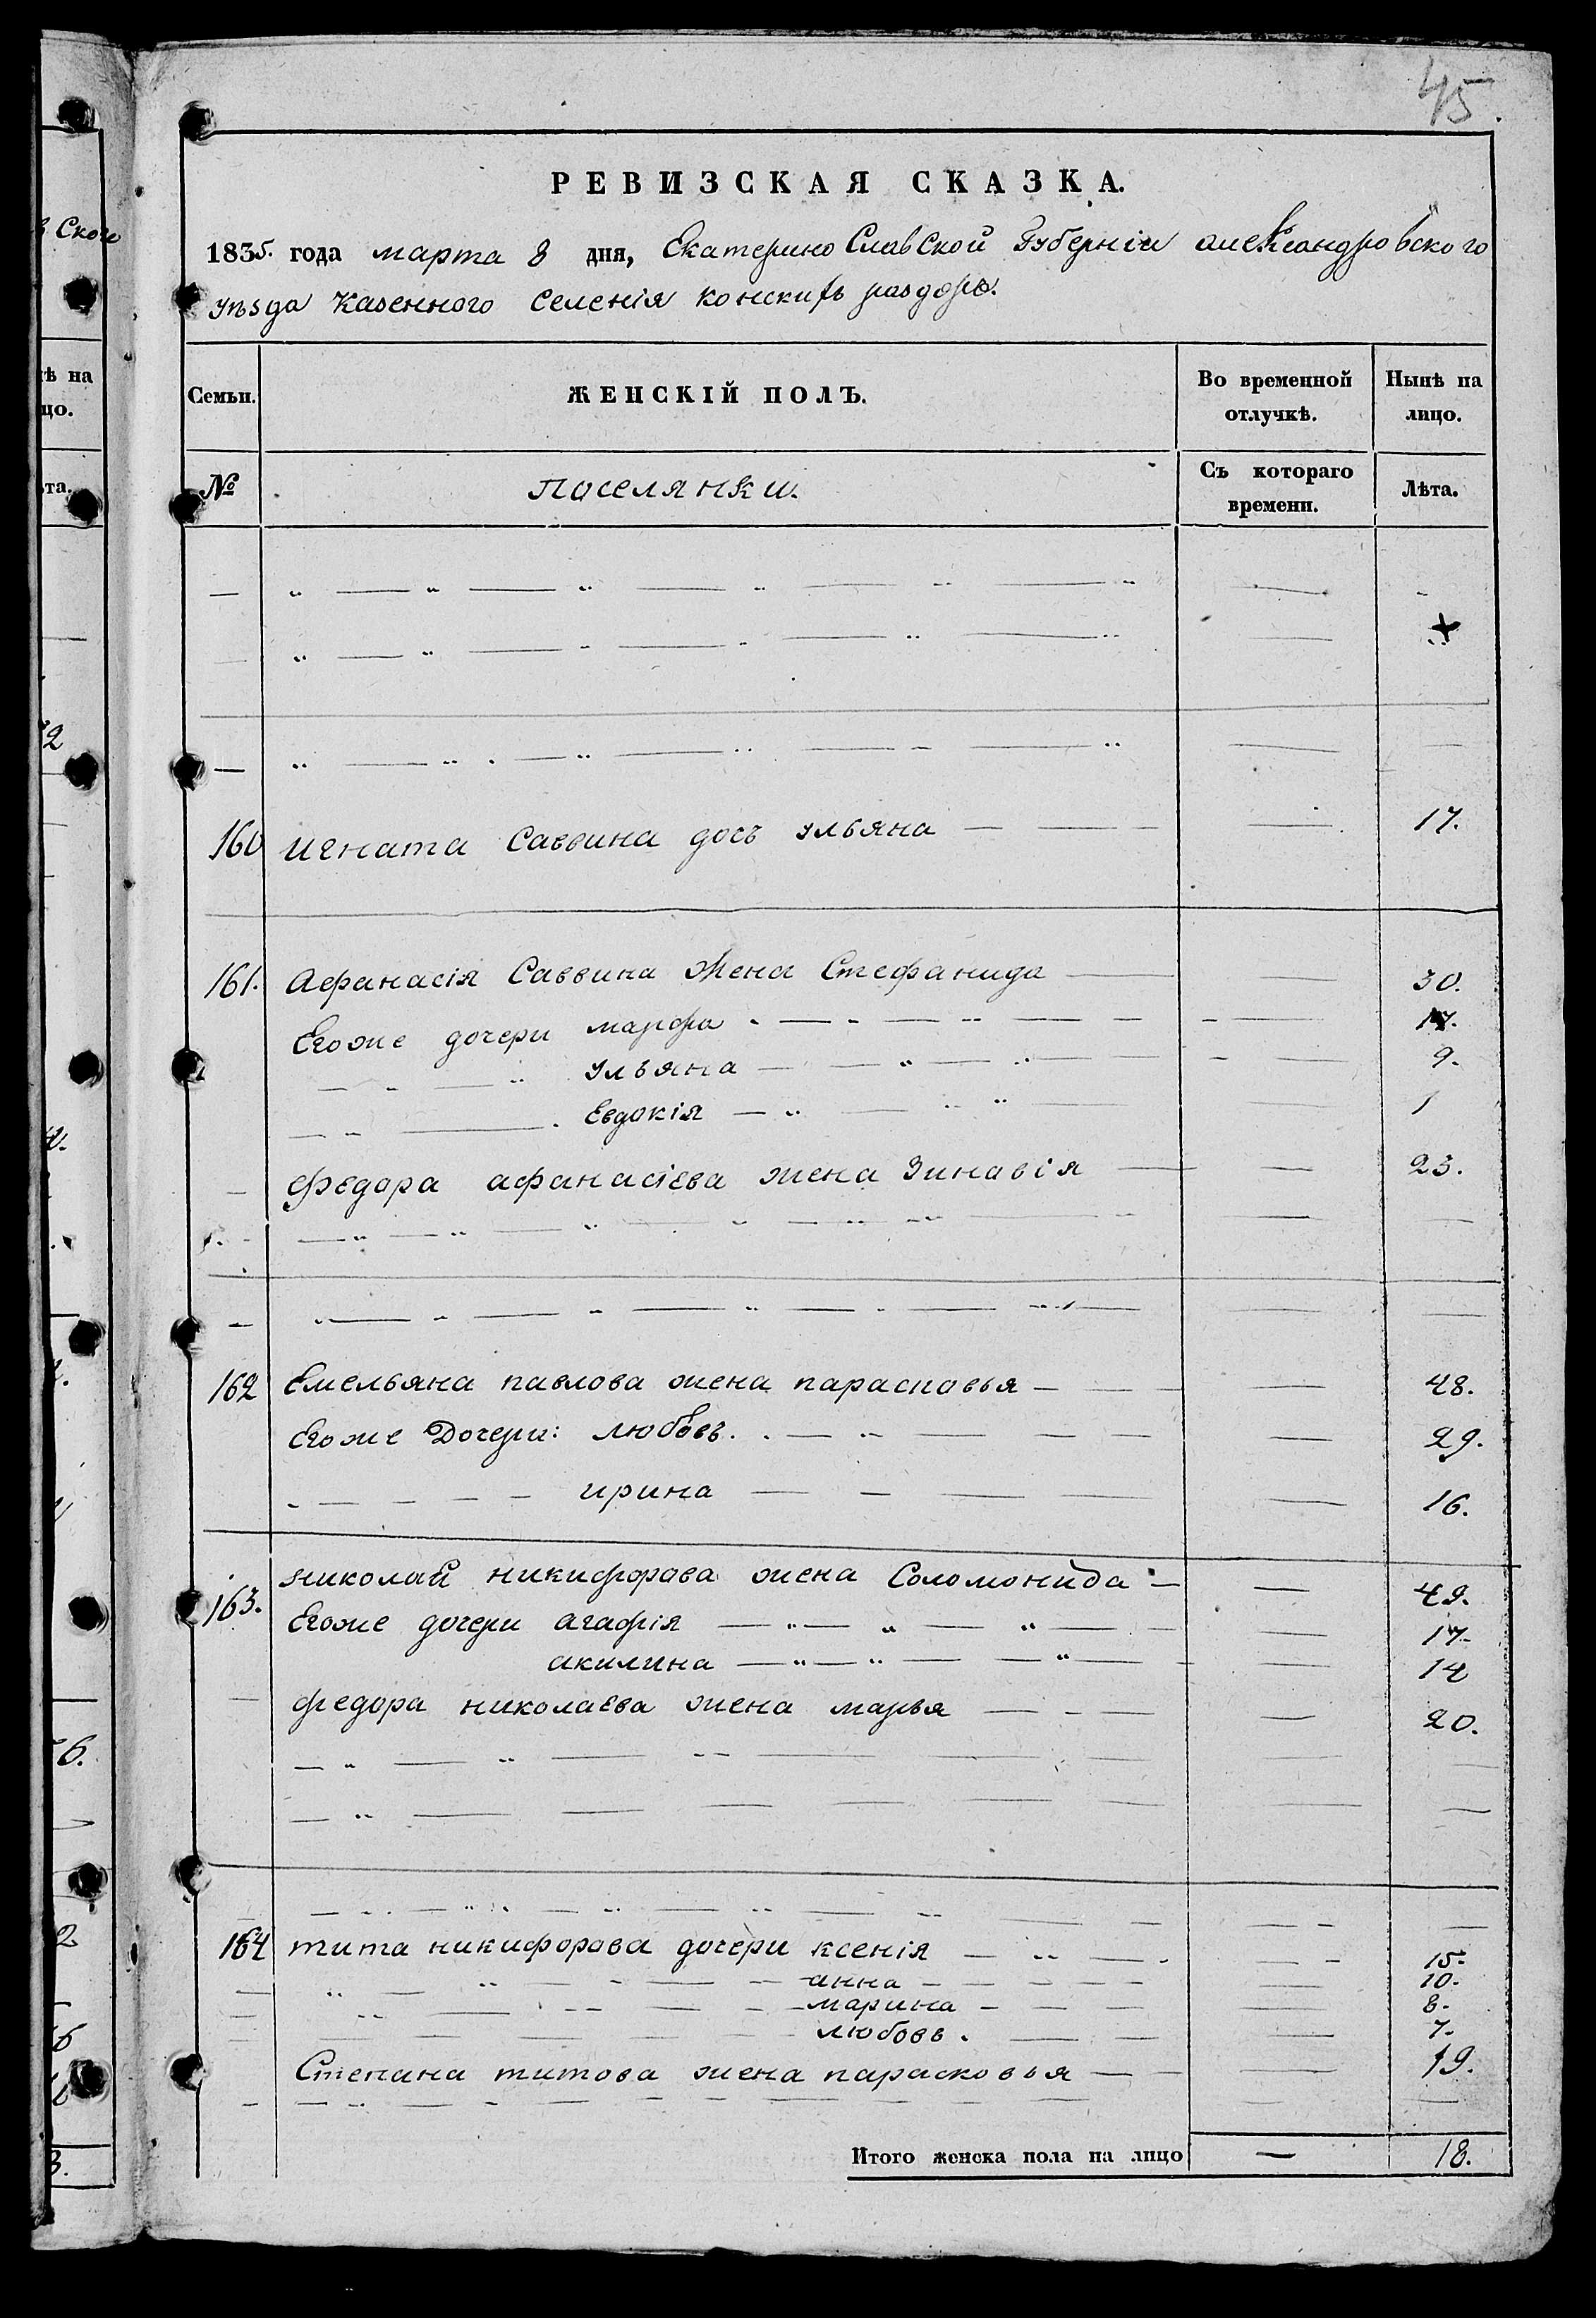 45.
РЕВИЗСКАЯ СКАЗКА.
1835. года марта 8 дня, Екатерино Славской Губерніи александровского
уѣзда казенного селенія конскихъ раздоръ.
Семьи. ЖЕНСКІЙ ПОЛЪ. Во временной отлучкѣ. Нынѣ на лицо.
№ поселянки. Съ котораго времени. Лѣта.
160 игната Саввина дочь ульяна — 17.
161. Афанасія Саввина жена Стефанида — 30.
Егоже дочери марфа —
ульяна — 9.
Евдокія — 1
федора афанасіева жена Зинавія — 23.
162 Емельяна павлова жена парасковья — 48.
Егоже Дочери: любовь. — 29.
ирина — 16.
163. николай никифорова жена Соломонида — 49.
Егоже дочери агафія — 17.
акилина — 14
федора николаева жена марья — 20.
164 тита никифорова дочери ксенія — 15.
анна — 10.
марина — 8.
любовь. — 7.
Степана титова жена парасковья — 19.
Итого женска пола на лицо — 18.